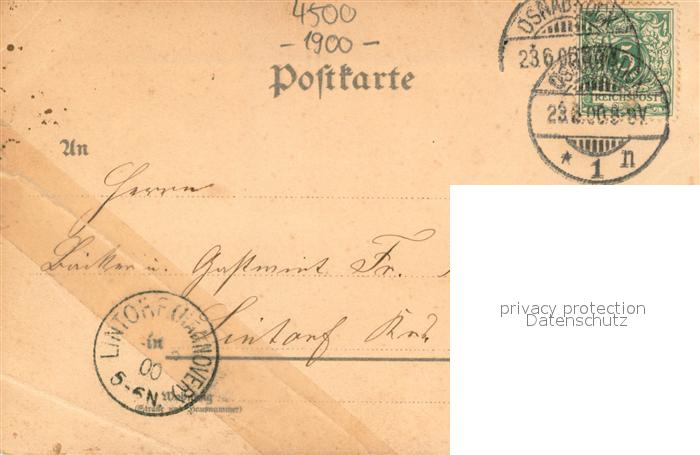 4500
-1900-
OSNABRÜCK
23.6.00
5
REICHSPOST
23.6.00.8-9V.
* 1 n
Postkarte
An
Herrn
Bäcker u. Gastwirt Fr.
Lintorf
LINTORF (HANNOVER)
00
5-6N.
in
Wohnung
(Straße und Hausnummer)
privacy protection
Datenschutz